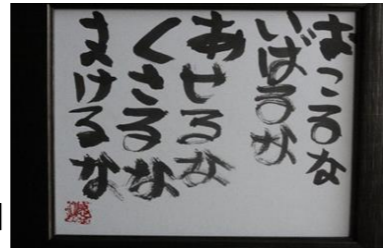 おこるな
いばるな
あせるな
くさるな
まけるな